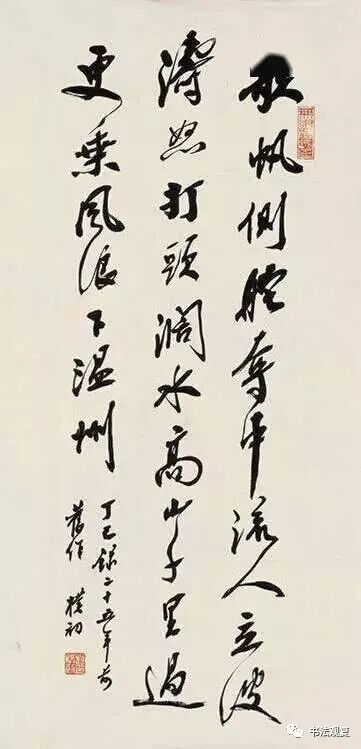 帆側舵奪中流人立波
濤怒打頭濶水高山千里過
更乘風浪下温州
丁巳録二十五年前
舊作 樸初
书法观复